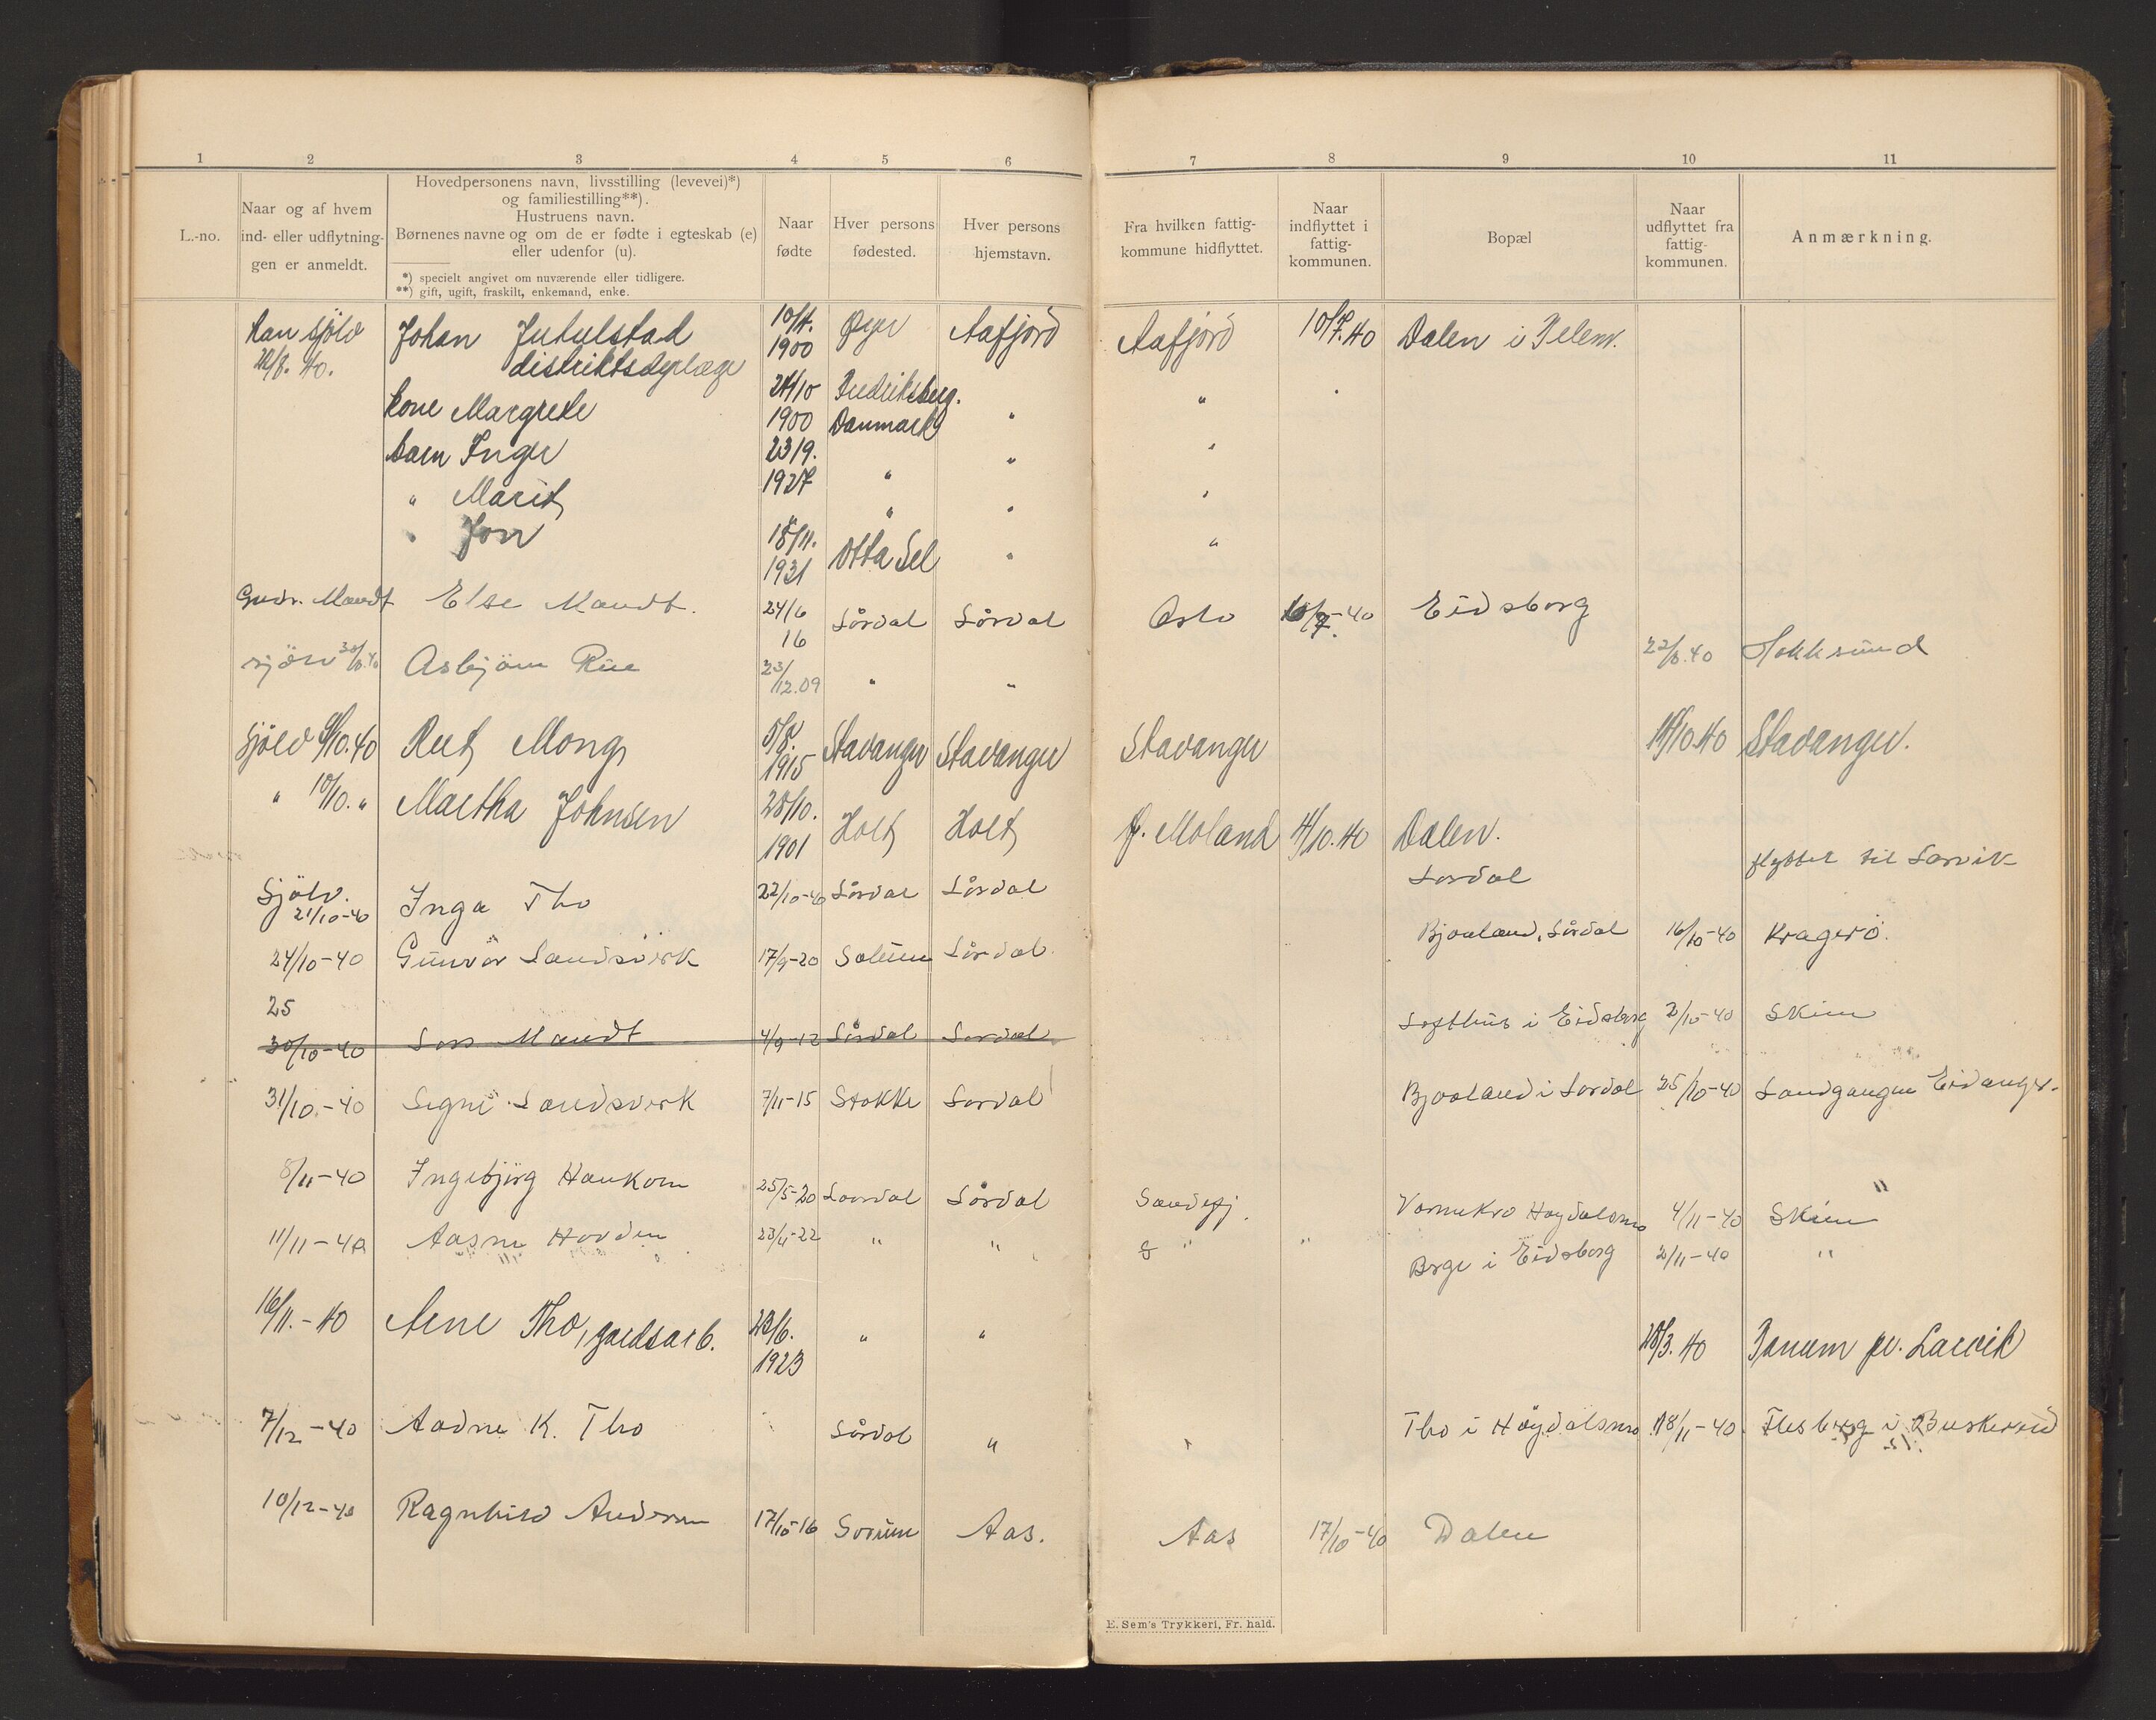 1 2 3 4 5 6 7 8 9 10 11
L.-no.
Naar og af hvem
ind- eller udflytnin-
gen er anmeldt.
Hovedpersonens navn, livsstilling (levevei)*)
og familiestilling**).
Hustruens navn.
Børnenes navne og om de er fødte i egteskab (e)
eller udenfor (u).
*) specielt angivet om nuværende eller tidligere.
**) gift, ugift, fraskilt, enkemand, enke.
Naar
fødte
Hver persons
fødested.
Hver persons
hjemstavn.
Fra hvilken fattig-
kommune hidflyttet.
Naar
indflyttet i
fattig-
kommunen.
Bopæl
Naar
udflyttet fra
fattig-
kommunen.
Anmærkning.
han sjölv Johan Jutulstad 10/4. Øyer Aafjord Aafjord 10/7.40 Dalen i Telem.
22/8. 40. distriktsdyrlæge 1900
kone Margrete 24/10 Fredriksberg.
1900 Danmark " "
barn Inger 23/9. " "
1927 "
" Marit " " "
" Jon 18/11. Otta Sel " "
1931
Gudr. Mandt Else Mandt. 24/6 Lårdal Lårdal Oslo 10/7-40 Eidsborg
16
sjølv 30/8.40 Asbjörn Rue 23/12.09 " " 22/8.40 Hokksund
Sjölv 9/10.40 Rut Mong 5/8. Stavanger Stavanger Stavanger 14/10.40 Stavanger.
1915
" 10/10. " Martha Johnsen 28/10. Holt Holt Ø. Moland 4/10.40 Dalen.
1901
Sjölv. Inga Tho 22/10-40 Lårdal Lårdal Lardal flyttet til Larvik
21/10-40
24/10-40 Gunvor Landsverk 17/9-20 Solum Lårdal Bjaaland, Lårdal 16/10-40 Kragerö.
25
30/10-40 Lars Mandt 4/9-12 Lårdal Lardal Lofthus i Eidsborg 2/10-40 Skien
31/10-40 Signe Landsverk 7/11-15 Stokke Lardal Bjaaland i Lardal 25/10-40 Landgangen Eidanger.
8/11-40 Ingebjörg Haukom 25/5-20 Laardal Lårdal Sandefj. Vamekro Høydalsmo 4/11-40 Skien "
11/11-40 Aasne Hovden 23/4-22 " " " " Berge i Eidsborg 2/11-40 "
16/11.-40 Arne Tho, gardsarb. 20/6. " " 28/3.40 Tanum pr. Larvik
1923
7/12-40 Aadne K. Tho Lårdal " Tho i Høydalsmo 18/11-40 Flesberg i Buskerud
10/12-40 Ragnhild Andersen 17/10-16 Sørum Aas. Aas 17/10-40 Dalen
E. Sem's Trykkeri, Fr. hald.